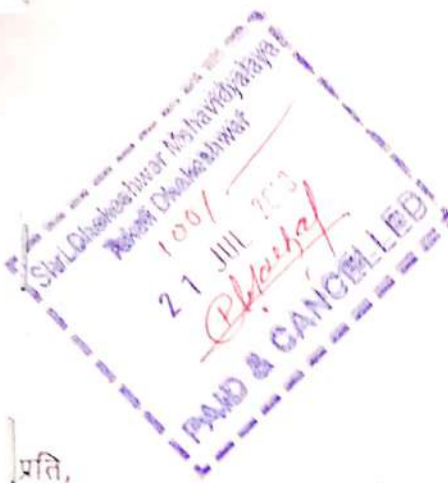 Shri.Dhokeshwar Mahavidyalaya
Takali Dhokeshwar
100/-
21 JUL
PAID & CANCELLED
प्रति,